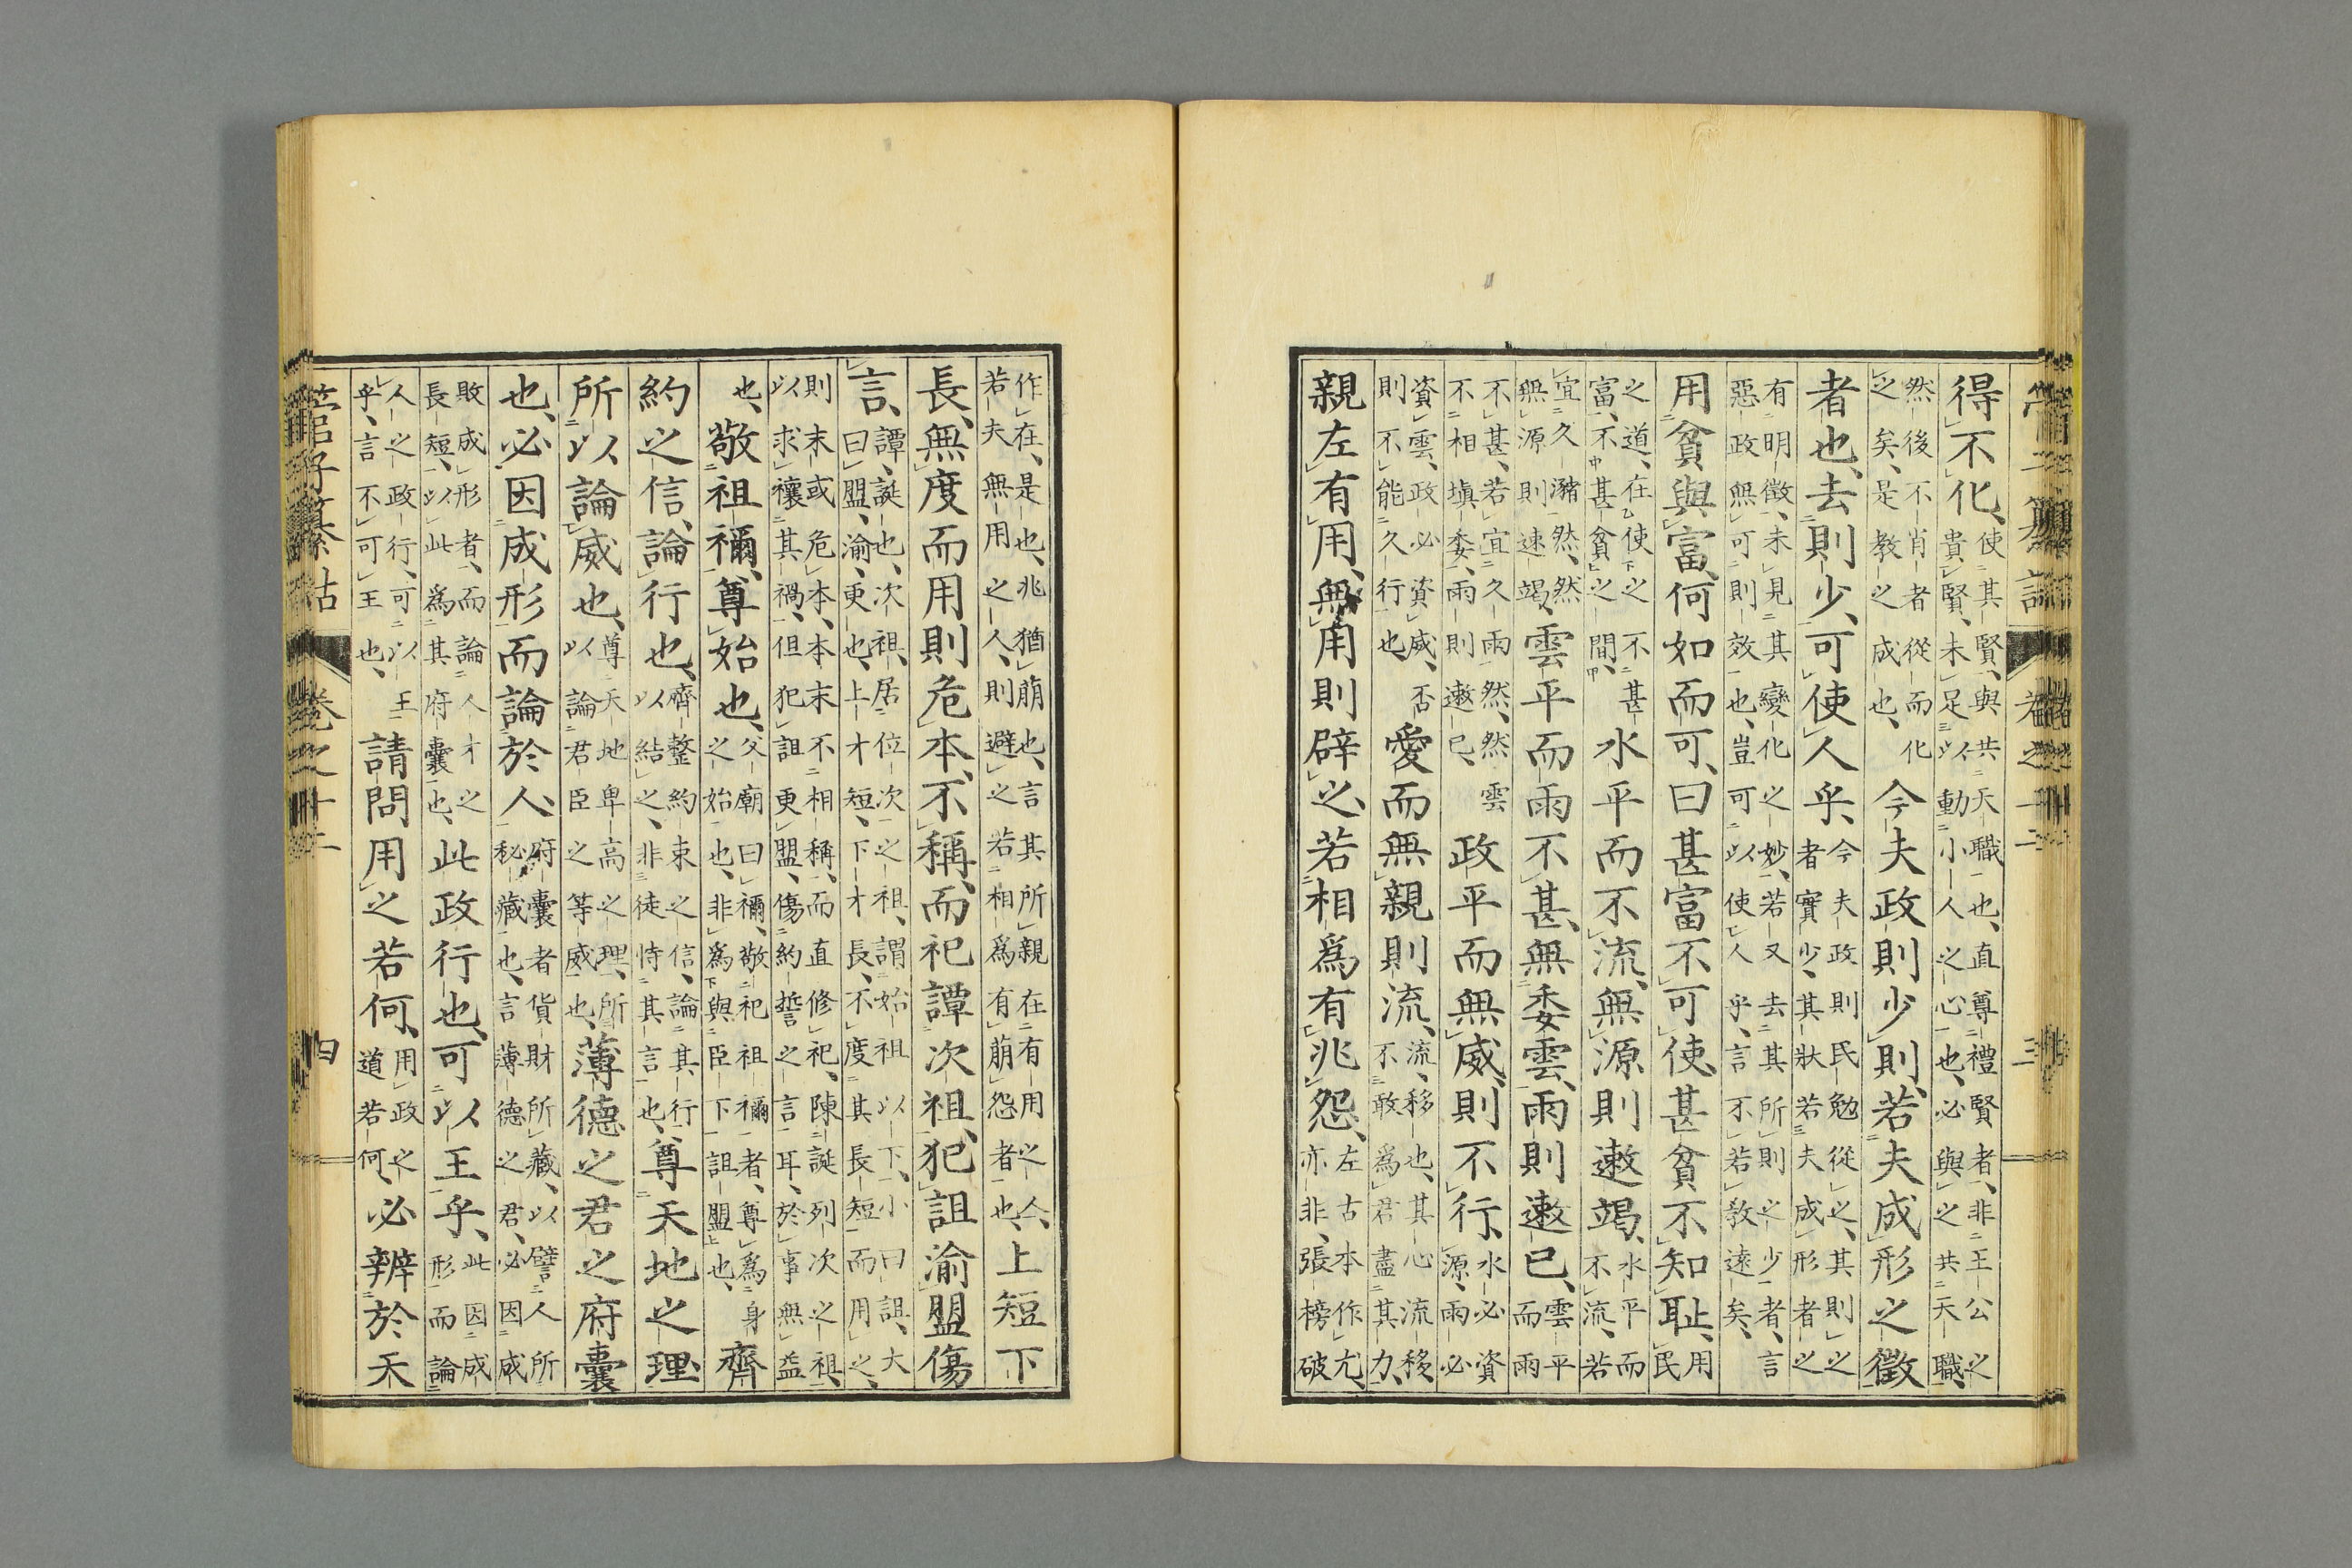 管子纂詁 卷之十二 三
得不化、使其賢、與共天職也、直尊禮賢者、非王公之貴賢、未足以動小人之心也、必與之共天職、
然後不肖者從而化之矣、是敎之成也、今夫政則少則、若夫成形之徵
者也、去則少、可使人乎、今夫政則民勉從之、其則之者實少、其狀若夫成形者之
有明徵、未見其變化之妙、若又去其所則之少者、言惡政無可則效也、豈可以使人乎、言不若敎遠矣、
用貧與富、何如而可、曰甚富不可使、甚貧不知恥、用民
之道、在使之不甚富、不甚貧之間、水平而不流、無源則遬竭、水平而不流、若
宜久瀦然、然無源則速竭、雲平而雨不甚、無委雲、雨則遬已、雲平而雨
不甚、若宜久雨然、然雲不相塡委、雨則遬已、政平而無威、則不行、水必資源、雨必
資雲、政必資威、否則不能久行也愛而無親則流、流、移也、其心流移、不敢爲君盡其力、
親左有用、無用則辟之、若相爲有兆怨、左古本作尤、亦非、張榜破
作在、是也、兆猶萠也、言其所親在有用之人、若夫無用之人、則避之若相爲有萠怨者也、上短下
長、無度而用則危本、不稱、而祀譚次祖、犯詛渝盟傷
言、譚、誕也、次祖、居位次之祖、謂始祖以下、小曰詛、大曰盟、渝、更也、上才短、下才長、不度其長短而用之、
則末或危本、本末不相稱、而直修祀、陳誕列次之祖、以求禳其禍、但犯詛更盟、傷約誓之言耳、於事無益
也、敬祖禰、尊始也、父廟曰禰、敬祀祖禰者、尊爲身之始也、非爲與臣下詛盟也、齊
約之信、論行也、齊整約束之信、論其行以結之、非徒恃其言也、尊天地之理
所以論威也、尊天地卑高之理、所以論君臣之等威也、薄德之君之府囊
也、必因成形而論於人、府囊者貨財所藏、以譬人所秘藏也、言薄德之君、必因成
敗成形者、而論人才之長短、以此爲其府囊也、此政行也、可以王乎、此因成形而論
人之政行、可以王乎、言不可王也、請問用之若何、用政之道若何、必辨於天
管子纂詁 卷之十二 四